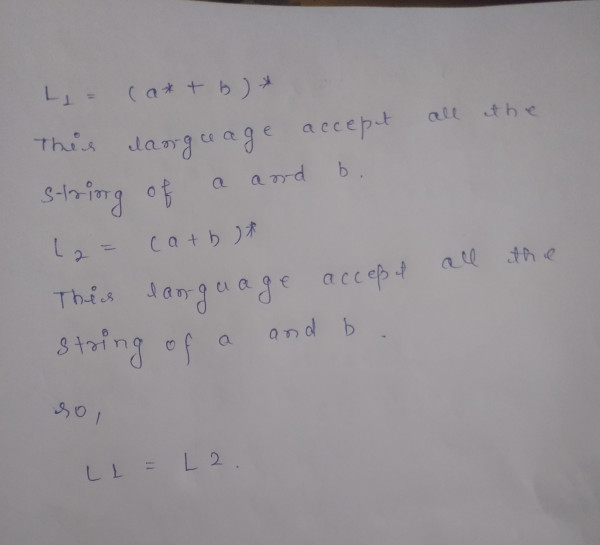 L1 = (a* + b)*
This language accept all the
string of a and b.
L2 = (a+b)*
This language accept all the
string of a and b.
so,
L1 = L2.